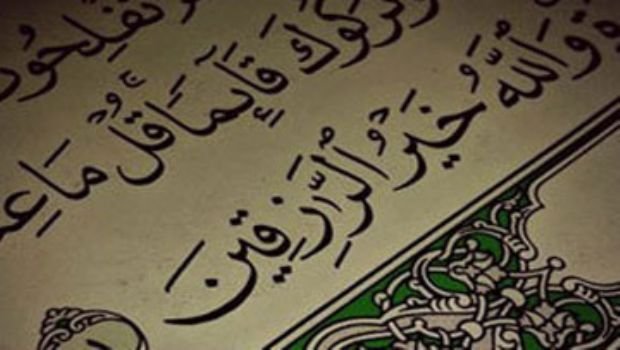 تُفْلِحُونَ
وَتَرَكُوكَ قَآئِمًا قُلْ مَا
وَاللَّهُ خَيْرُ الرَّٰزِقِينَ